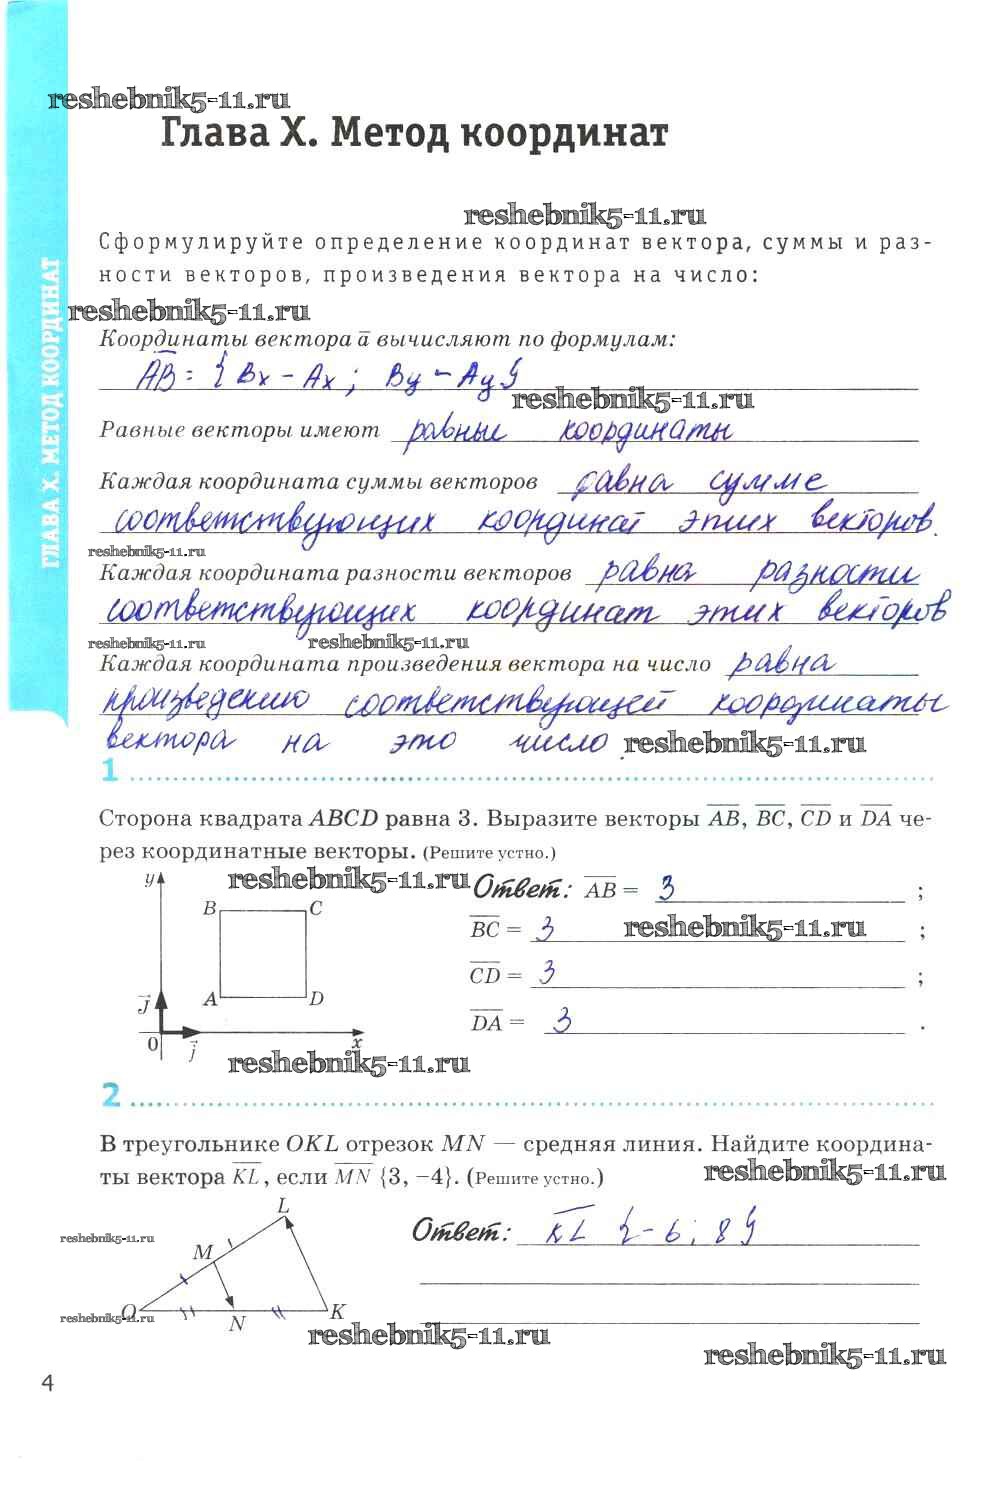 reshebnik5-11.ru
Глава X. Метод координат
reshebnik5-11.ru
Сформулируйте определение координат вектора, суммы и раз-
ности векторов, произведения вектора на число:
ГЛАВА X. МЕТОД КООРДИНАТ
reshebnik5-11.ru
Координаты вектора a̅ вычисляют по формулам:
A̅B̅ = { Bx - Ax ; By - Ay }
reshebnik5-11.ru
Равные векторы имеют равные координаты
Каждая координата суммы векторов равна сумме
соответствующих координат этих векторов.
reshebnik5-11.ru
Каждая координата разности векторов равна разности
соответствующих координат этих векторов
reshebnik5-11.ru reshebnik5-11.ru
Каждая координата произведения вектора на число равна
произведению соответствующей координаты
вектора на это число. reshebnik5-11.ru
1
Сторона квадрата ABCD равна 3. Выразите векторы A̅B̅, B̅C̅, C̅D̅ и D̅A̅ че-
рез координатные векторы. (Решите устно.)
reshebnik5-11.ru
Ответ: A̅B̅ = 3 ;
B̅C̅ = 3 reshebnik5-11.ru ;
C̅D̅ = 3 ;
D̅A̅ = 3 .
y
B C
A D
j⃗
0 j⃗ x
reshebnik5-11.ru
2
В треугольнике OKL отрезок MN — средняя линия. Найдите координа-
ты вектора K̅L̅, если M̅N̅ {3, −4}. (Решите устно.)
reshebnik5-11.ru
Ответ: K̅L̅ {-6; 8}
L
reshebnik5-11.ru
M
O N K
reshebnik5-11.ru
reshebnik5-11.ru
reshebnik5-11.ru
4